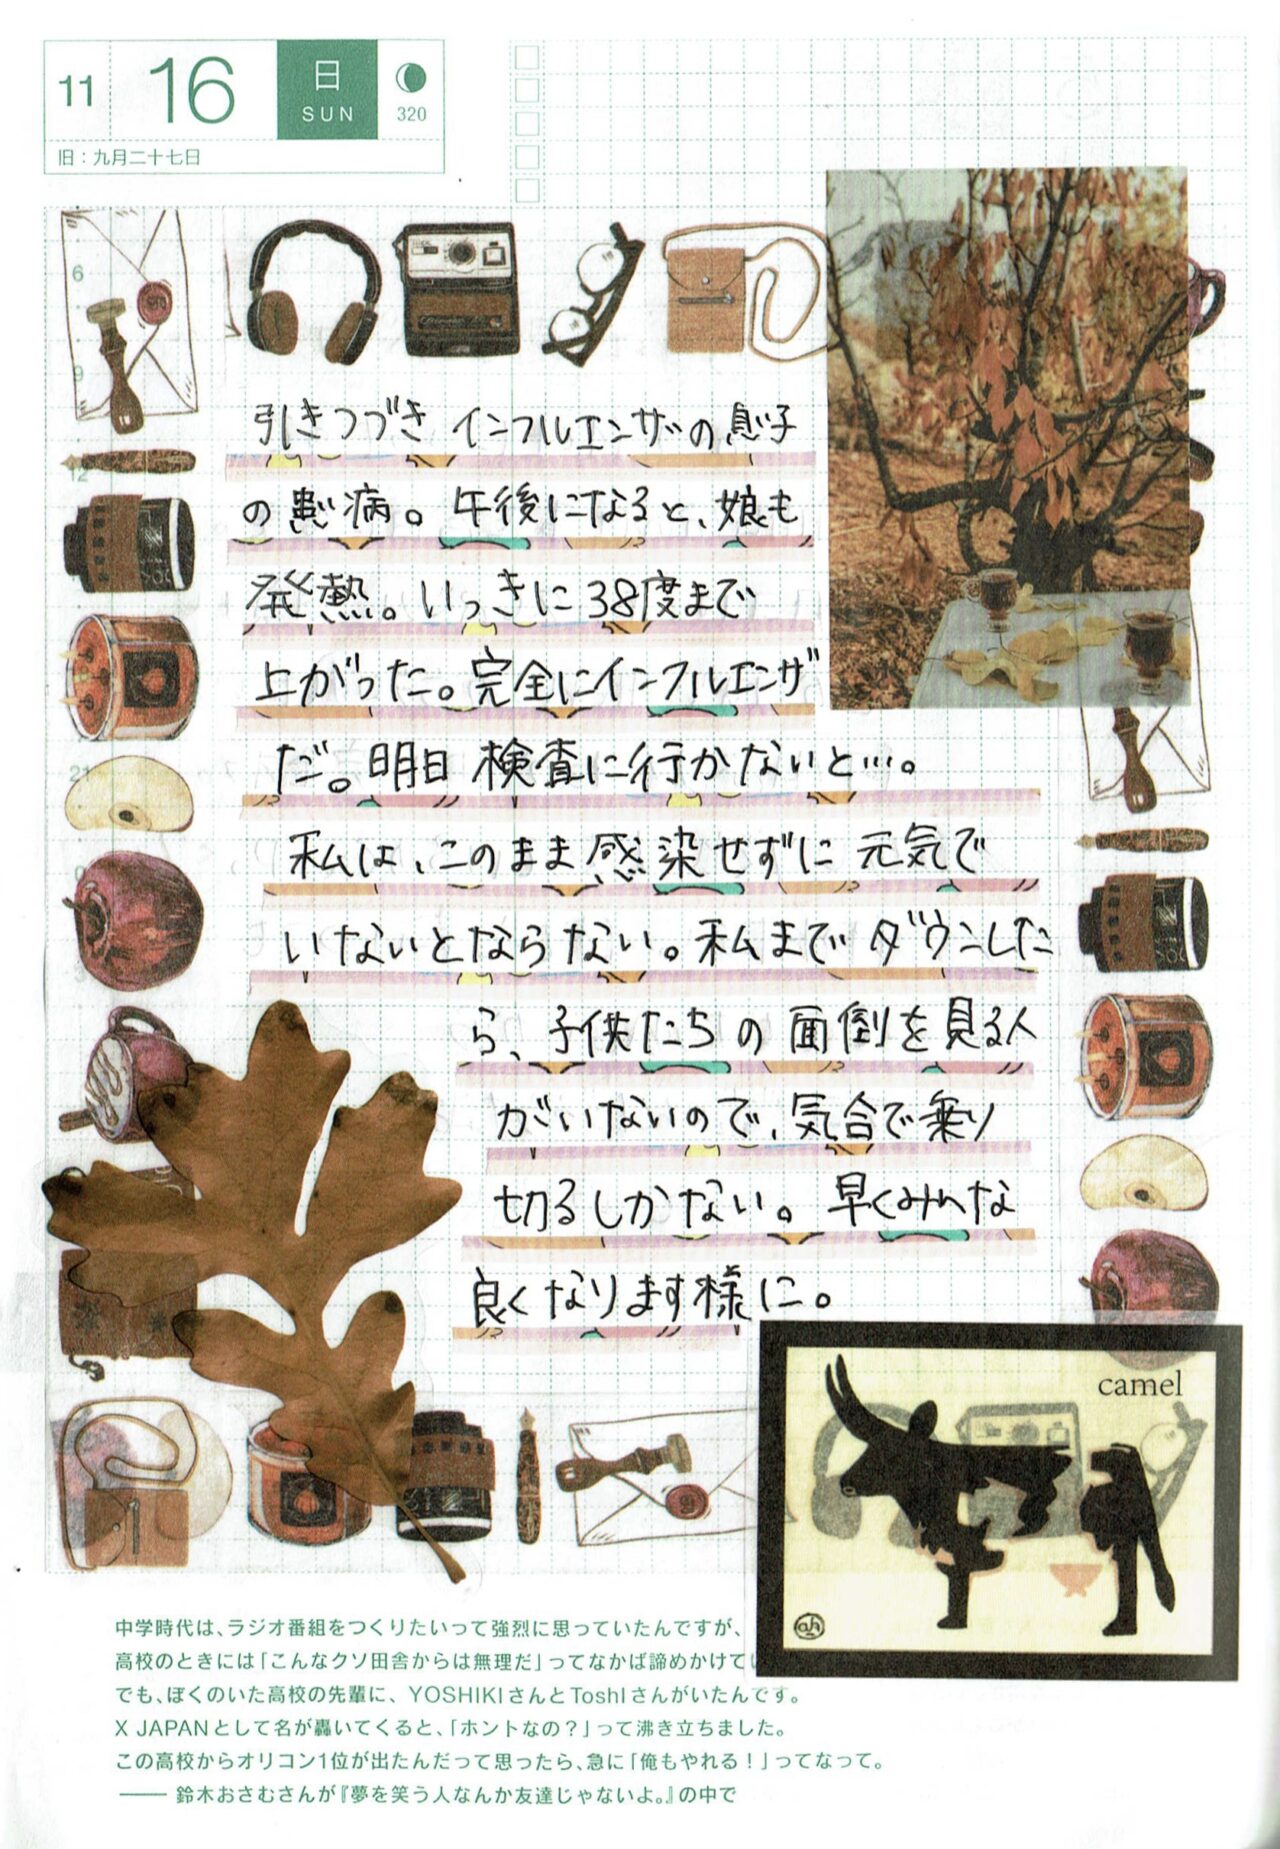 11 16 日 SUN 320
旧：九月二十七日
6
9
12
21
引きつづき インフルエンザの息子
の看病。午後になると、娘も
発熱。いっきに38度まで
上がった。完全にインフルエンザ
だ。明日 検査に行かないと…。
私は、このまま感染せずに 元気で
いないとならない。私まで ダウンした
ら、子供たちの 面倒を見る人
がいないので、気合で乗り
切るしかない。早くみんな
良くなります様に。
camel
中学時代は、ラジオ番組をつくりたいって強烈に思っていたんですが、
高校のときには「こんなクソ田舎からは無理だ」ってなかば諦めかけてい
でも、ぼくのいた高校の先輩に、YOSHIKIさんとToshIさんがいたんです。
X JAPANとして名が轟いてくると、「ホントなの？」って沸き立ちました。
この高校からオリコン1位が出たんだって思ったら、急に「俺もやれる！」ってなって。
―― 鈴木おさむさんが『夢を笑う人なんか友達じゃないよ。』の中で